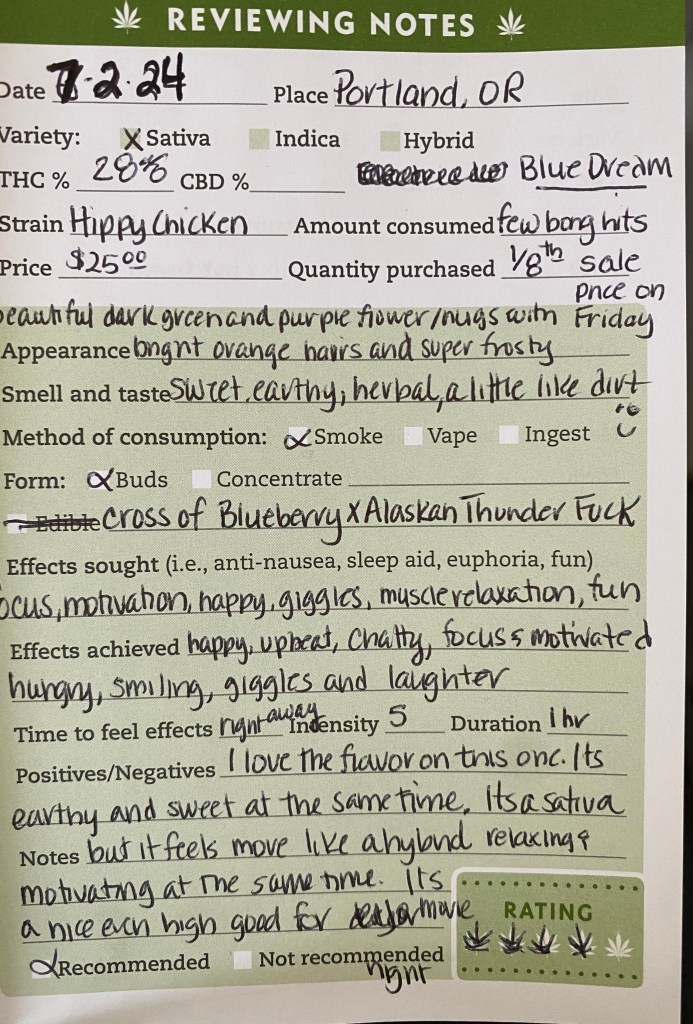 REVIEWING NOTES
Date 7-2-24 Place Portland, OR
Variety: X Sativa Indica Hybrid
THC % 28% CBD % Blue Dream
Strain Hippy Chicken Amount consumed few bong hits
Price $25.00 Quantity purchased 1/8th sale
price on
eautiful dark green and purple flower/nugs with Friday
Appearance bright orange hairs and super frosty
Smell and taste Sweet, earthy, herbal, a little like dirt
Method of consumption: Smoke Vape Ingest
Form: Buds Concentrate
Edible Cross of Blueberry X Alaskan Thunder Fuck
Effects sought (i.e., anti-nausea, sleep aid, euphoria, fun)
ocus, motivation, happy, giggles, muscle relaxation, fun
Effects achieved happy, upbeat, chatty, focus & motivated
hungry, smiling, giggles and laughter
Time to feel effects right away Intensity 5 Duration 1 hr
Positives/Negatives I love the flavor on this one. Its
earthy and sweet at the same time. Its a sativa
Notes but it feels more like a hybrid relaxing &
motivating at the same time. Its
a nice even high good for movie
night
RATING
Recommended Not recommended